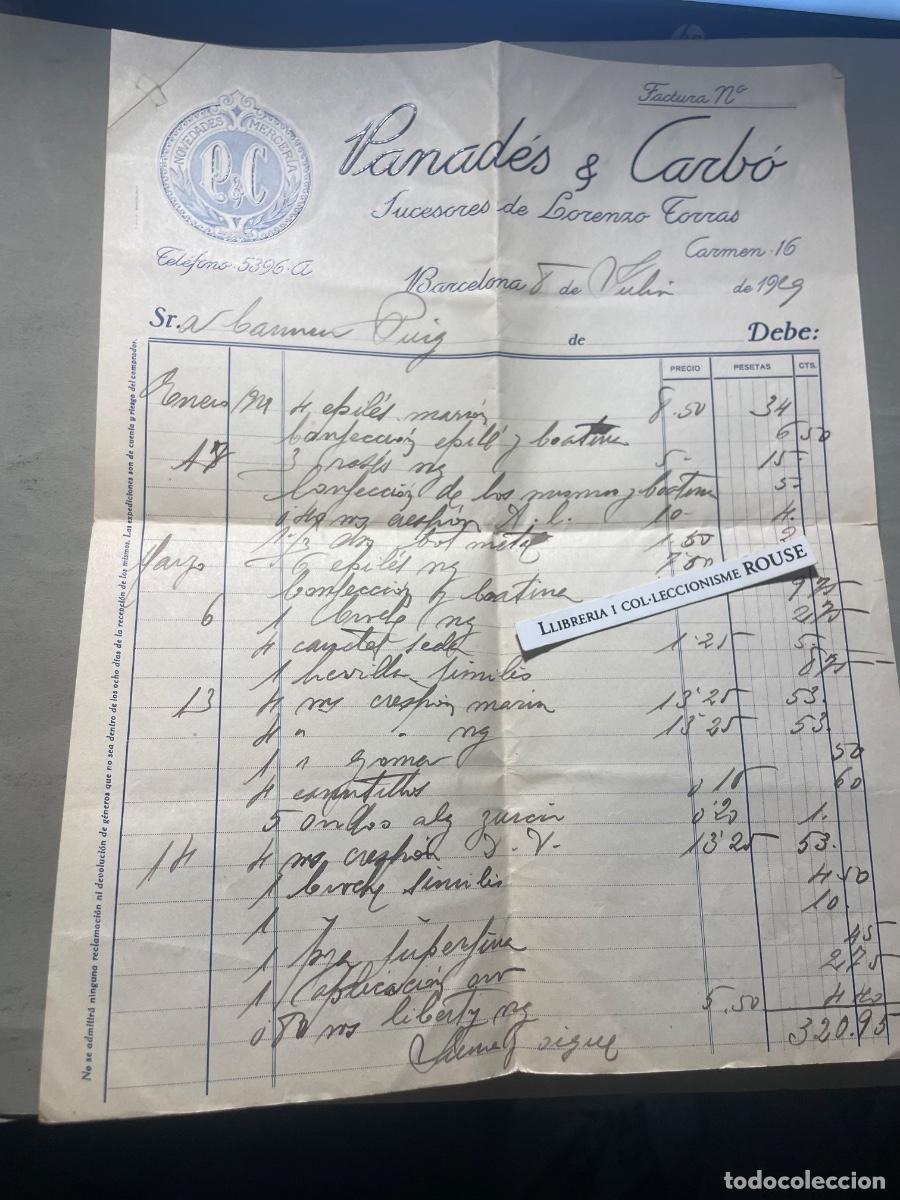 Factura Nº
NOVEDADES MERCERÍA
P & C
Panadés & Carbó
Sucesores de Lorenzo Torras
Carmen-16
Teléfono-5396-A
Barcelona 8 de Julio de 1929
Sr. a Carmen Puig de Debe:
PRECIO PESETAS CTS.
Enero 4 epilés marrón 8.50 34
Confección epilé y boatine 6 50
3 ng 5- 15-
Confección de los mismos y boatine 5-
0'40 ms crespón 10- 4.
1.50
Marzo 6 epilés ng
Confección y boatine 9 75
6 1 Broche ng 2 75
4 seda 1'25 5-
1 hevilla similis 8 75
13 4 ms crespón marrón 13'25 53.
4 " " ng 13'25 53.
1 " goma 50
4 canutillos 0'15 60
5 alg zurcir 0'20 1.
14 4 ms crespón 13'25 53.
1 Broche similis 4 50
1 10.
1 superfine 45
1 aplicación 2 75
0'80 ms liberty ng 5.50 4 40
320.95
Suma y sigue
No se admitirá ninguna reclamación ni devolución de géneros que no sea dentro de los ocho días de la recepción de los mismos. Las expediciones son de cuenta y riesgo del comprador.
LLIBRERIA I COL·LECCIONISME ROUSE
todocoleccion